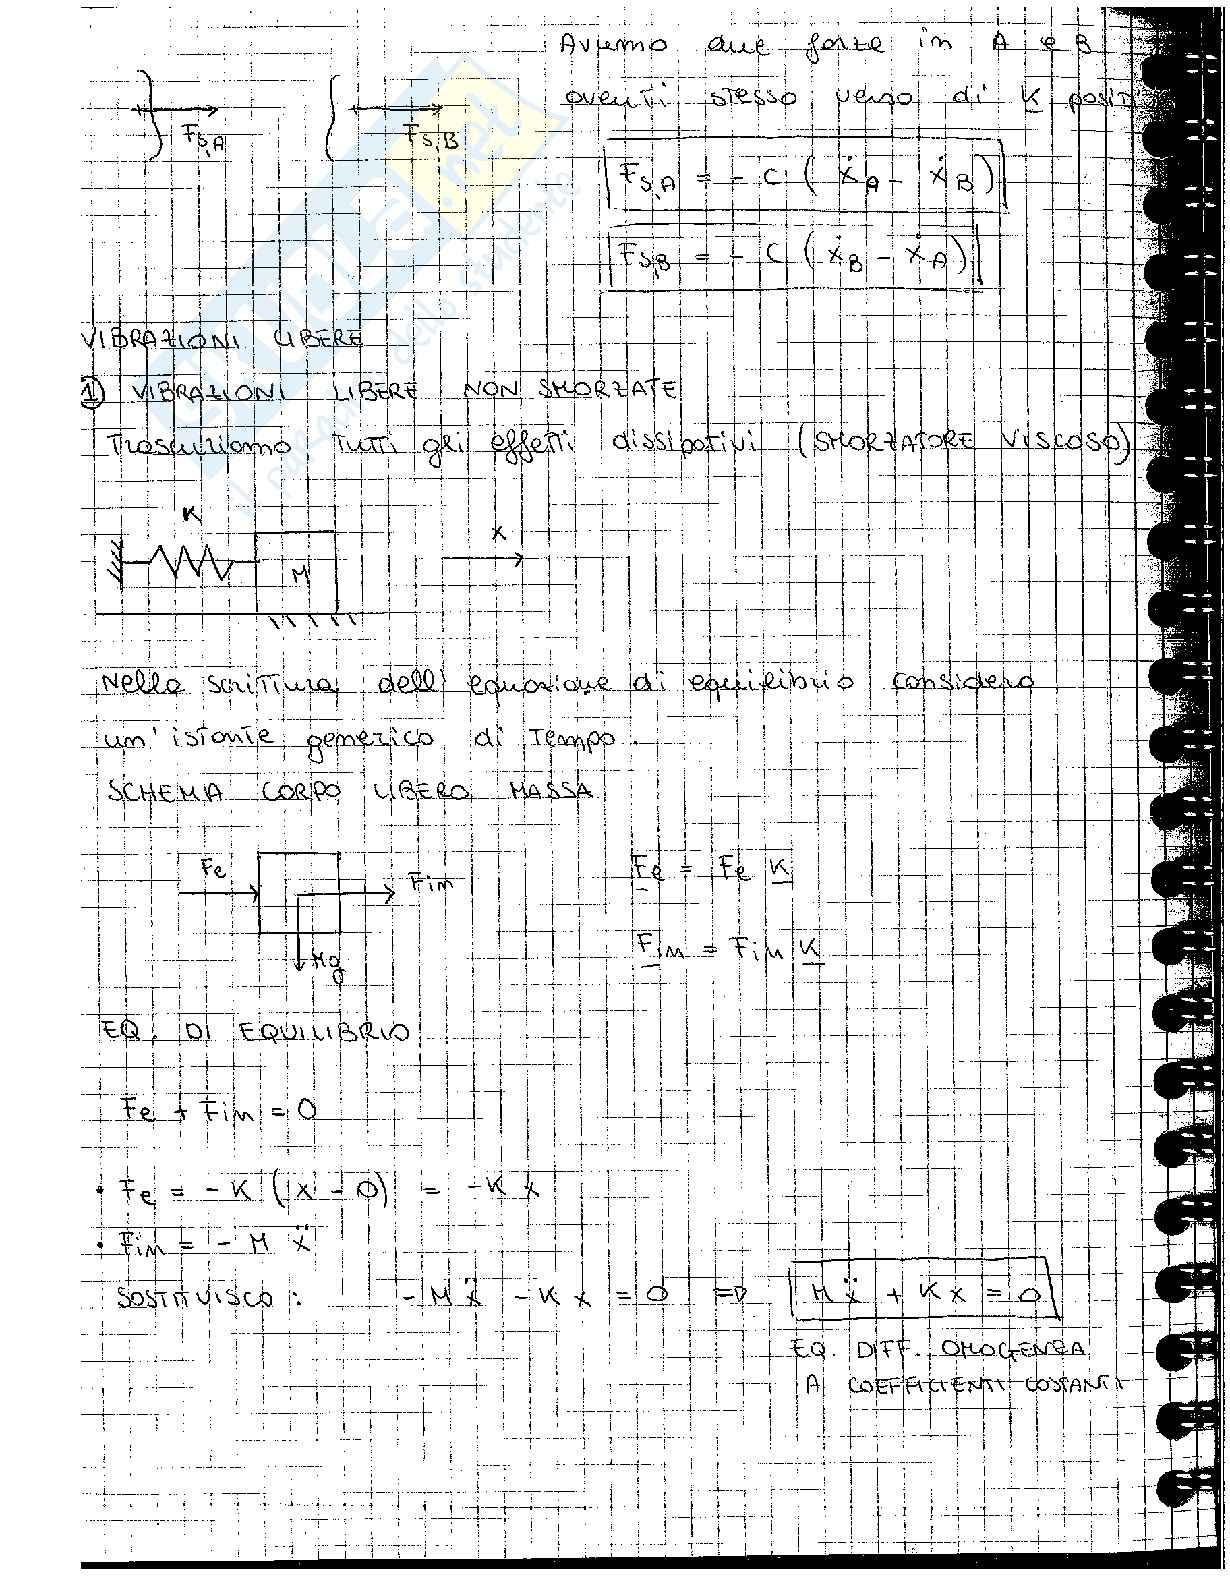 Avremo due forze in A e B
aventi stesso verso di K posit
Fs,A Fs,B
Fs,A = - C ( ẋA - ẋB )
Fs,B = - C ( ẋB - ẋA )
VIBRAZIONI LIBERE
1) VIBRAZIONI LIBERE NON SMORZATE
Trascuriamo tutti gli effetti dissipativi (SMORZATORE VISCOSO)
K
M
X
Nella scrittura dell' equazione di equilibrio considero
un' istante generico di tempo.
SCHEMA CORPO LIBERO MASSA
Fe Fin Mg
Fe = Fe K
Fin = Fin K
EQ. DI EQUILIBRIO
Fe + Fin = 0
• Fe = - K (x - 0) = - K x
• Fin = - M ẍ
SOSTITUISCO: - M ẍ - K x = 0 => M ẍ + K x = 0
EQ. DIFF. OMOGENEA
A COEFFICIENTI COSTANTI